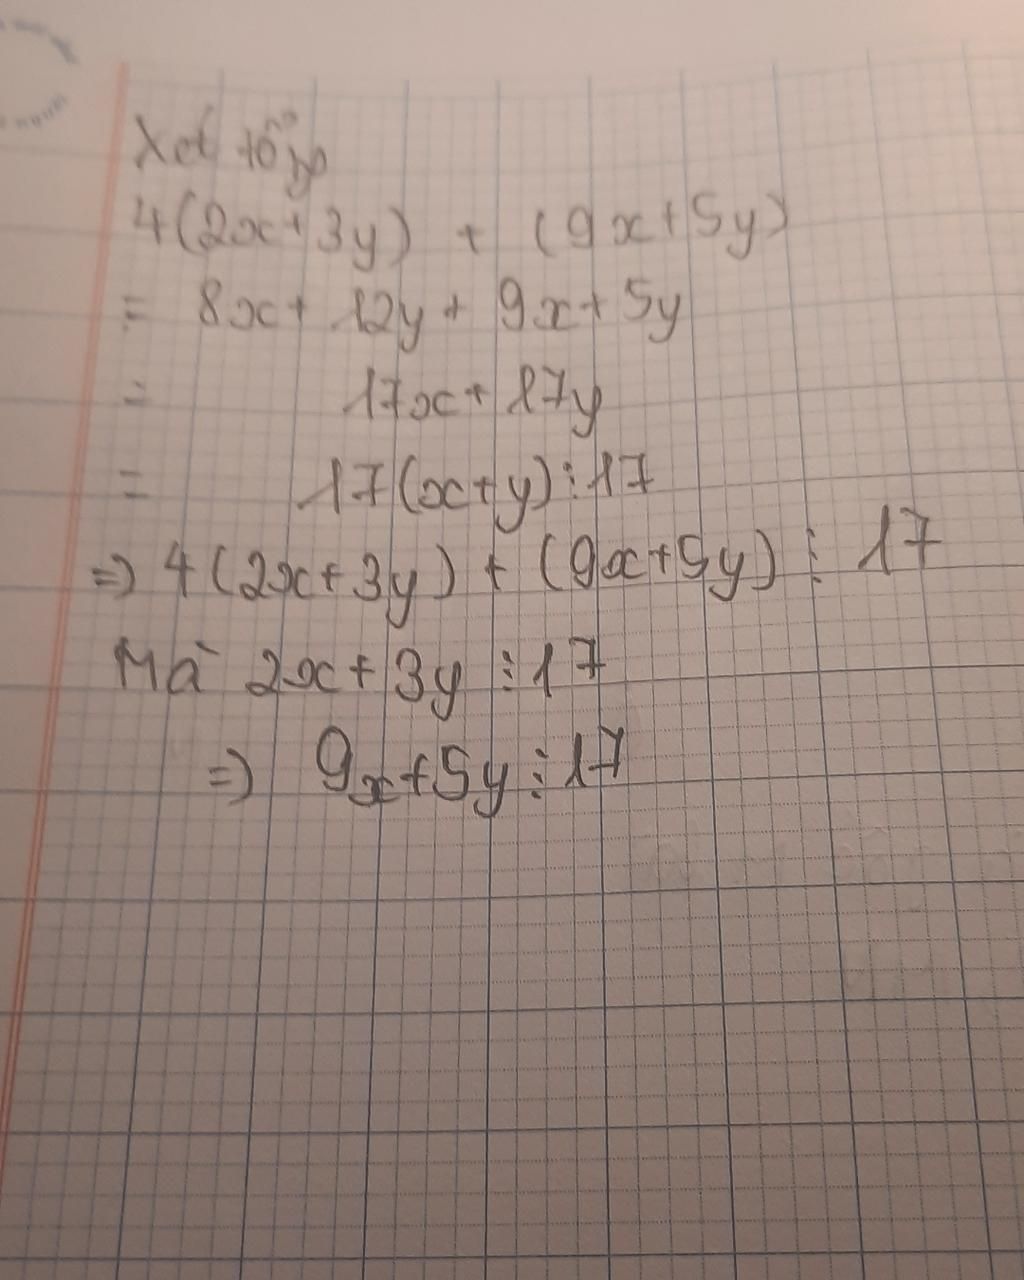 Xét tổng
4(2x+3y) + (9x+5y)
= 8x+ 12y+ 9x+5y
= 17x+ 17y
= 17(x+y)⋮17
=> 4(2x+3y) + (9x+5y) ⋮ 17
Mà 2x+3y ⋮17
=> 9x+5y⋮17